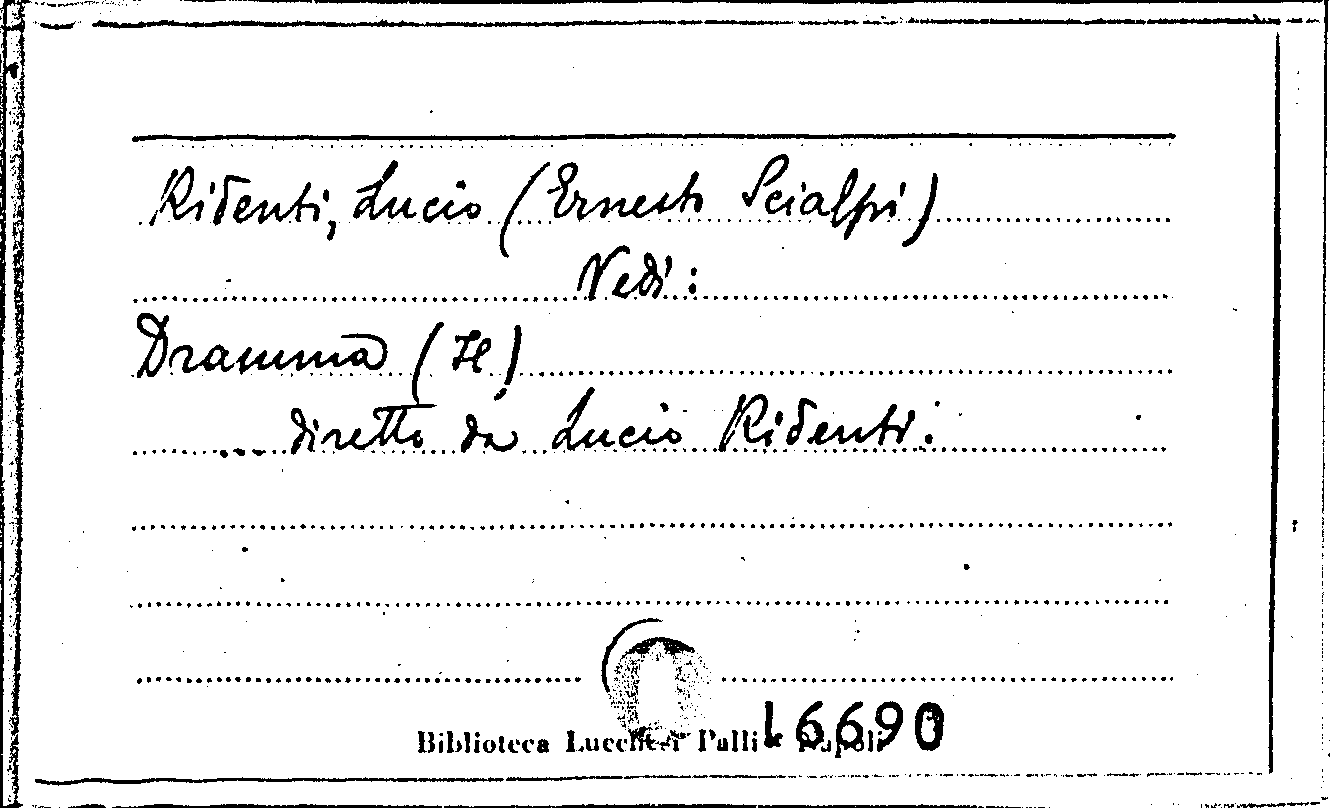 Ridenti, Lucio (Ernesto Scialpi)
Vedi:
Dramma (Il)
... diretto da Lucio Ridenti.
Biblioteca Lucchesi Palli - Napoli
16690